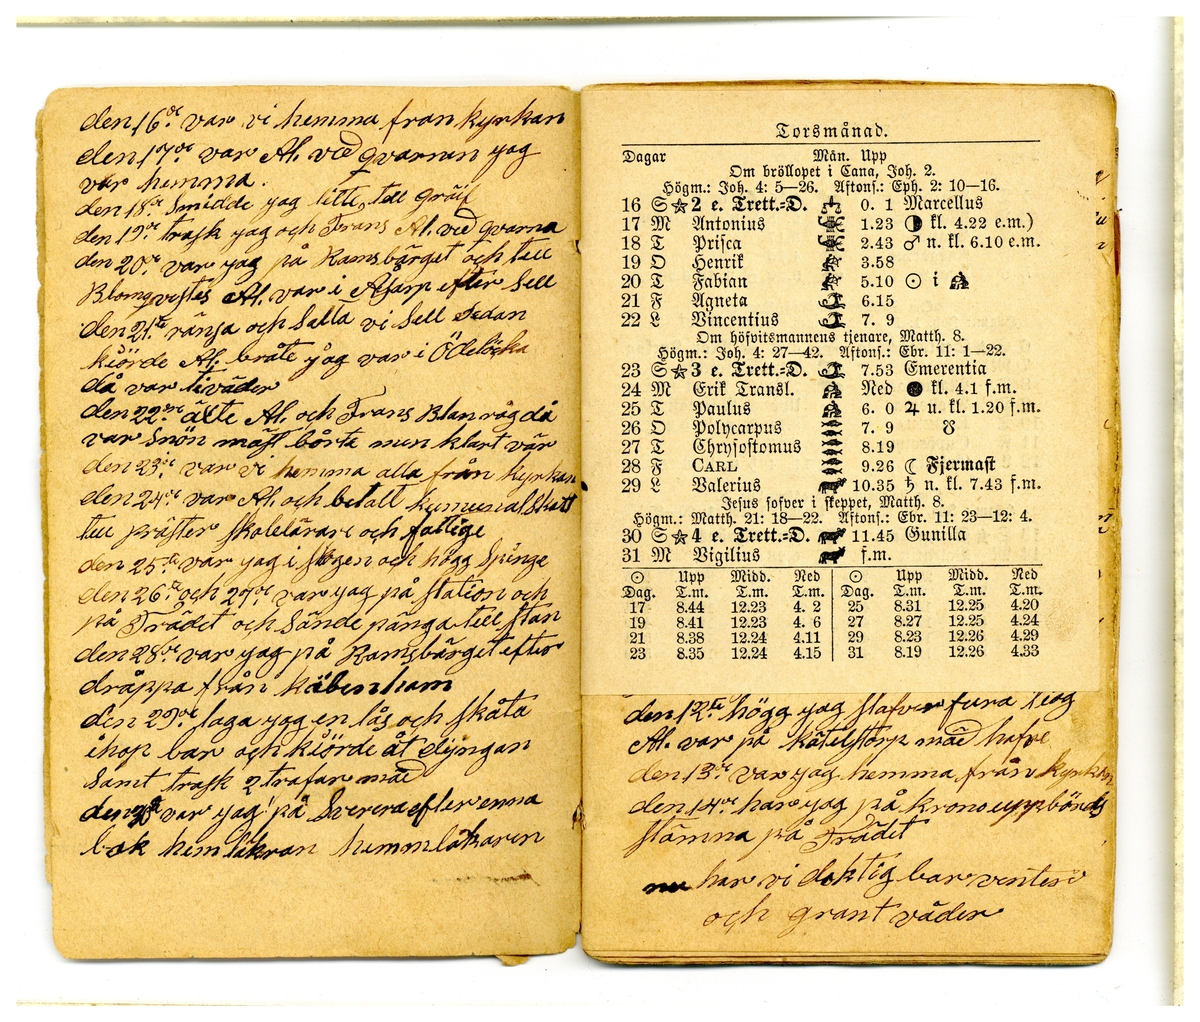 den 16de var vi hemma från kyrkan
den 17de var Al. vid qvarnen jag
var hemma.
den 18de Smidde jag litte till gräif
den 19de trask jag och Frans Al. ved qvarna
den 20de var jag på Ramsbärget och till
Blomqvistes Al. var i Asarp efter Sell
den 21ste ränsa och Salta vi Sell Sedan
kiörde Al. bråte jag var i Ödelöcka
då var tiväder
den 22ne älte Al. och Frans Blan råg då
var Snön mäst bårte men klart vär
den 23de var vi hemma alla från kyrkan
den 24de var Al. och betalt kumunal Skatt
till präster skolelärare och fattige
den 25te var jag i skogen och högg Spinge
den 26te och 27de var jag på station och
på Trädet och Sände pänga till stan
den 28de var jag på Ramsbärget efter
dråppa från käbenham
den 29de laga jag en lås och skåta
ihop bar och kiörde åt dyngan
Samt trask 2 trafar mäd
den var jag på efter enna
bok hemläkran hemmläkaren
Torsmånad.
Dagar Mån. Upp
Om bröllopet i Cana, Joh. 2.
Högm.: Joh. 4: 5—26. Aftons.: Eph. 2: 10—16.
16 S ☆ 2 e. Trett.=D. 0. 1 Marcellus
17 M Antonius 1.23 ◑ kl. 4.22 e.m.)
18 T Prisca 2.43 ♂ n. kl. 6.10 e.m.
19 O Henrik 3.58
20 T Fabian 5.10 ☉ i
21 F Agneta 6.15
22 L Vincentius 7. 9
Om höfvitsmannens tjenare, Matth. 8.
Högm.: Joh. 4: 27—42. Aftons.: Ebr. 11: 1—22.
23 S ☆ 3 e. Trett.=D. 7.53 Emerentia
24 M Erik Transl. Ned ● kl. 4.1 f.m.
25 T Paulus 6. 0 ♃ u. kl. 1.20 f.m.
26 O Polycarpus 7. 9 ☋
27 T Chrysostomus 8.19
28 F CARL 9.26 ☾ Fjermast
29 L Valerius 10.35 ♄ n. kl. 7.43 f.m.
Jesus sofver i skeppet, Matth. 8.
Högm.: Matth. 21: 18—22. Aftons.: Ebr. 11: 23—12: 4.
30 S ☆ 4 e. Trett.=D. 11.45 Gunilla
31 M Vigilius f.m.
☉ Upp Midd. Ned ☉ Upp Midd. Ned
Dag. T.m. T.m. T.m. Dag. T.m. T.m. T.m.
17 8.44 12.23 4. 2 25 8.31 12.25 4.20
19 8.41 12.23 4. 6 27 8.27 12.25 4.24
21 8.38 12.24 4.11 29 8.23 12.26 4.29
23 8.35 12.24 4.15 31 8.19 12.26 4.33
den 12te högg jag stafver fura
Al. var på kätelstorp mäd hafve
den 13de var jag hemma från kyrkan
den 14de har jag på kronouppbörds
stämna på Trädet
nu har vi doktig bar venterv
och grant väder